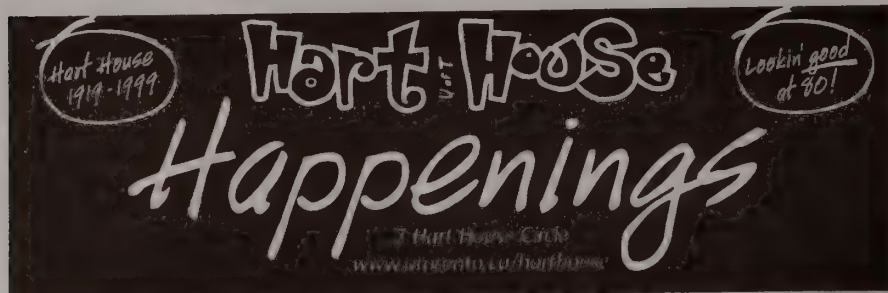 Hart House
1919-1999
Hart UofT House
Lookin' good
at 80!
Happenings
7 Hart House Circle
www.utoronto.ca/harthouse